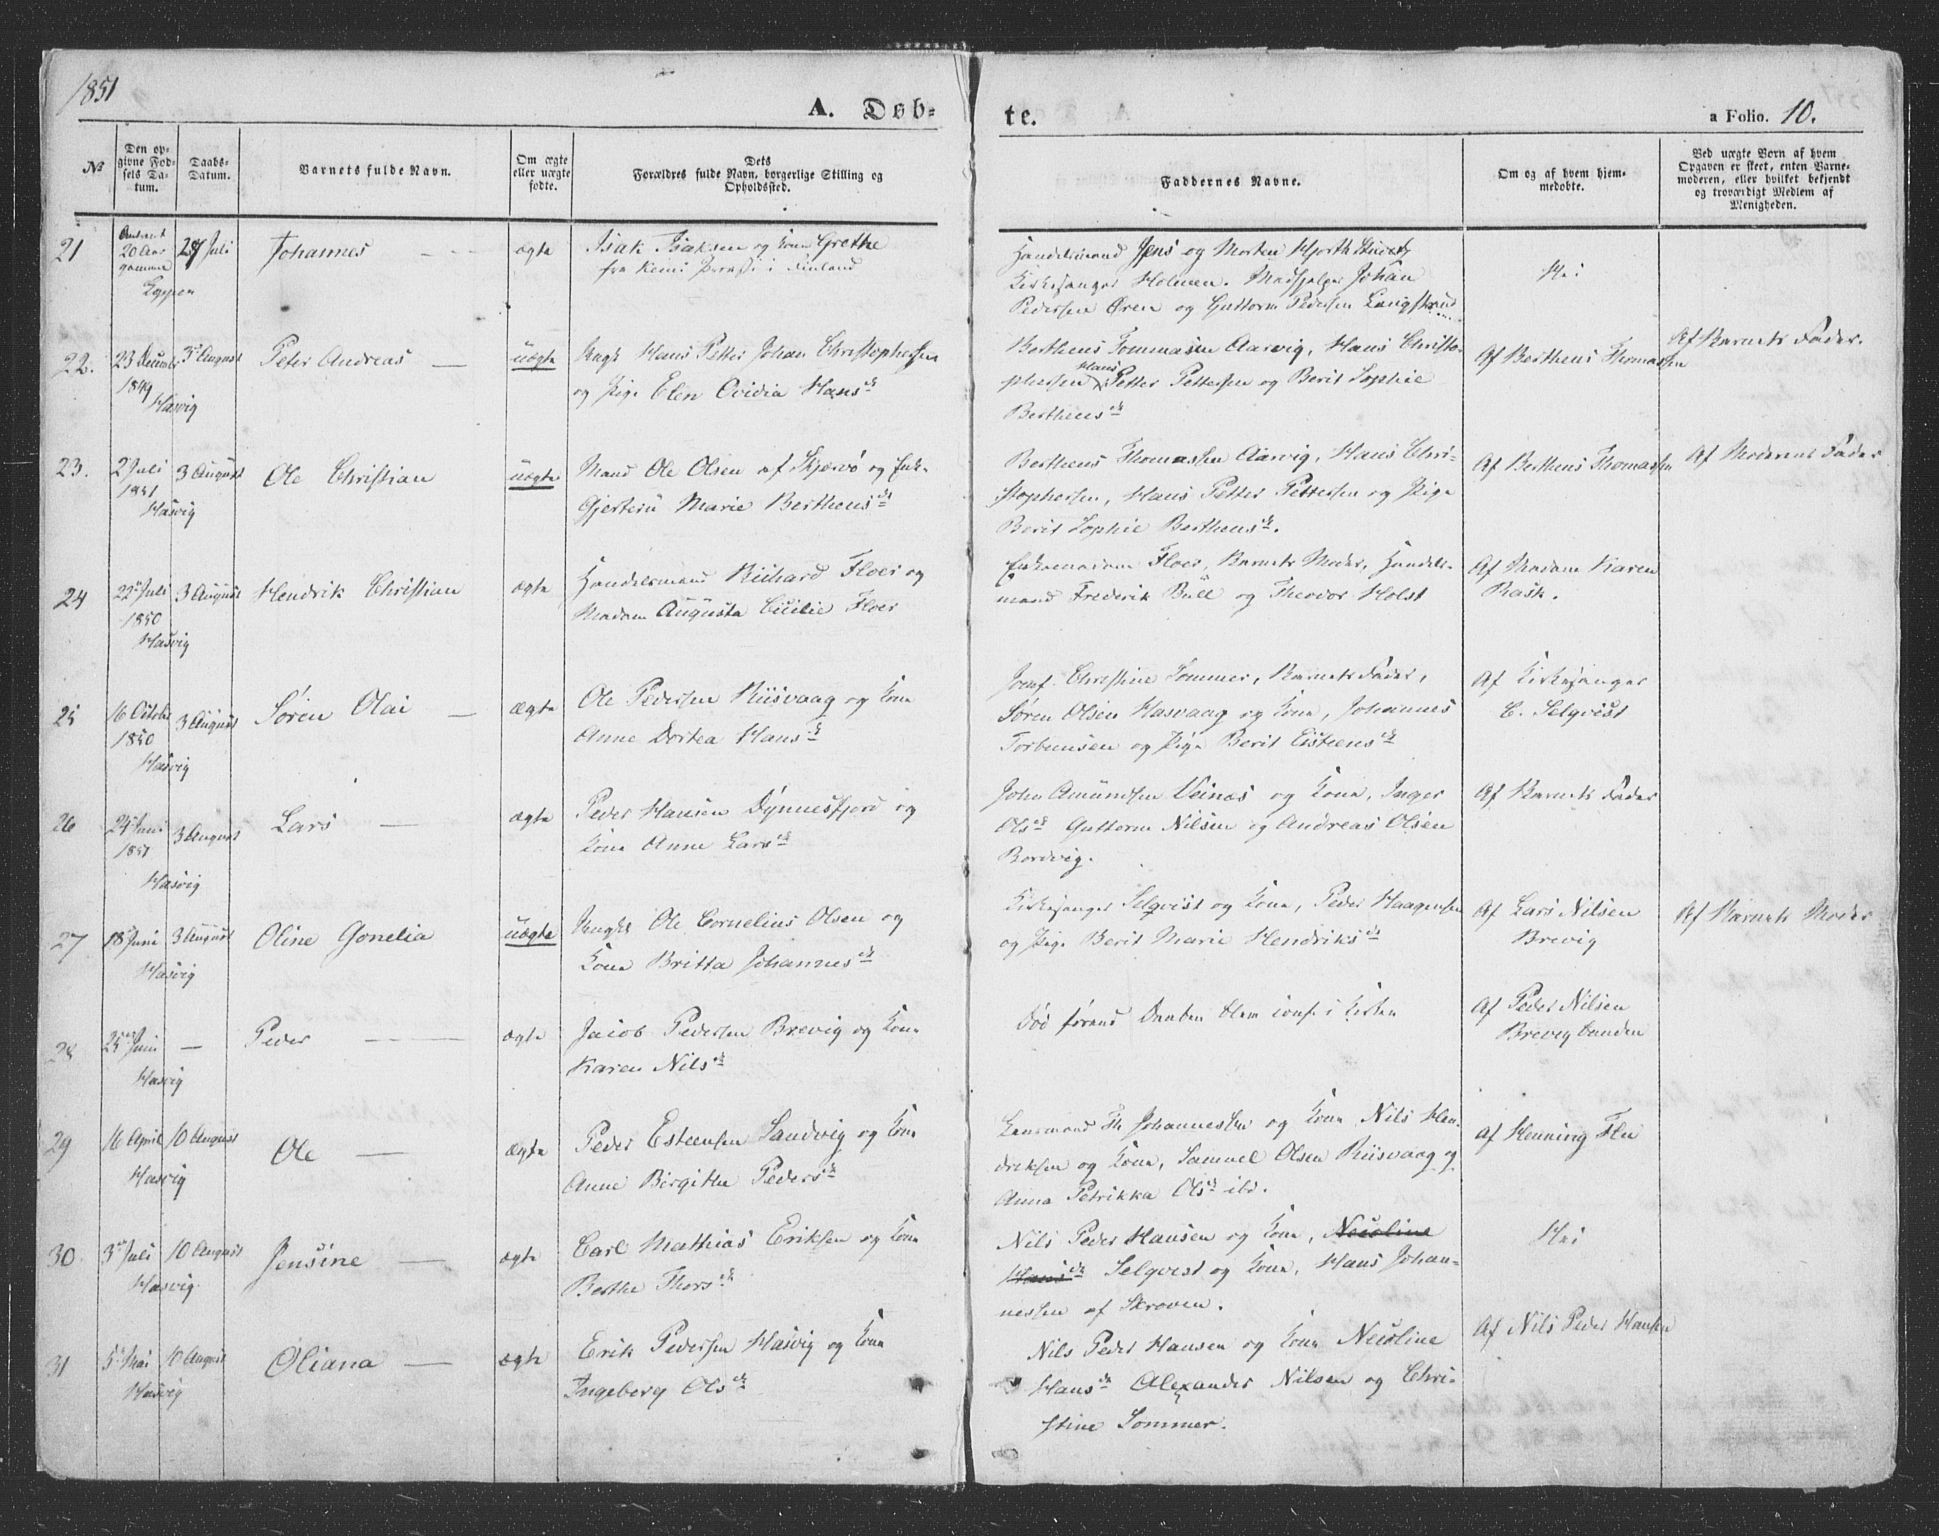 1851
A. Døb-
te.
a Folio. 10.
No
Den op-
givne Fød-
sels Da-
tum.
Daabs-
Datum.
Barnets fulde Navn.
Om ægte
eller uægte
fødte.
Dets
Forældres fulde Navn, borgerlige Stilling og
Opholdssted.
Faddernes Navne.
Om og af hvem hjem-
medøbte.
Ved uægte Børn af hvem
Opgaven er skeet, enten Barne-
moderen, eller hvilket bekjendt
og troværdigt Medlem af
Menigheden.
21
20 Aar
gammel
27 Juli
Johannes
ægte
Isak Isaksen og Kone Grethe
fra Kemi i Finland
Handelsmand Jens og Morten Hjorth
Kirkesanger Holmen. Johan
Pedersen Øren og Guttorm Pedersen Langstrand
Nei
22.
23 December
1849
Hasvig
3 August
Peter Andreas
uægte
Ungk Hans Petter Johan Christophersen
og Pige Elen Ovidia Hansdt
Berthens Tommasen Aarvig, Hans Christo-
phersen Hans Petter Pettersen og Berit Sophie
Berthensdt
Af Berthens Thomassen
Af Barnets Fader.
23.
2 Juli
1851
Hasvig
3 August
Ole Christian
uægte
Mand Ole Olsen af Skjervö og Enk-
Gjertru Marie Berthensdt
Berthens Thomassen Aarvig, Hans Chri-
stophersen, Hans Petter Pettersen og Pige
Berit Sophie Berthensdt.
Af Berthens Thomassen
Af Moderens Fader
24
22 Juli
1850
Hasvig
3 August
Hendrik Christian
ægte
Handelsmand Richard Floer og
Madam Augusta Cicilie Floer
Enkemadam Floer, Barnets Moder, Handels-
mand Frederik Bull og Theodor Holst
Af Madam Karen
Rask.
25
16 Octobr
1850
Hasvig
3 August
Sören Olai
ægte
Ole Pedersen Riisvaag og Kone
Anne Dortea Hansdt
Jomf. Christine Sommer, Barnets Fader,
Sören Olsen Hasvaag og Kone, Johannes
Torbensen og Pige Berit Eisteensdt
Af Kirkesanger
C. Selqvist
26
24 Juni
1851
Hasvig
3 August
Lars
ægte
Peder Hansen Dÿnnesfjord og
Kone Anne Larsdt
John Amundsen Veines og Kone, Inger
Olsdt Guttorm Nilsen og Andreas Olsen
Bordvig.
Af Barnets Fader
27
18 Juni
Hasvig
3 August
Oline Gonelia
uægte
Ungk Ole Cornelius Olsen og
Kone Britta Johannesdt
Kirkesanger Selqvist og Kone, Peder Haagensen
og Pige Berit Marie Hendriksdt
Af Lars Nilsen
Brevig
Af Barnets Moder
28
25 Juni
Hasvig
—
Peder
ægte
Jacob Pedersen Brevig og Kone
Karen Nilsdt
Död förend Daaben blev conf. i Kirken
Af Peder Nilsen
Brevigbunden
29
16 April
Hasvig
10 August
Ole
ægte
Peder Esteensen Sandvig og Kone
Anne Birgithe Pedersdt
Lensmand Th Johannessen og Kone Nils Hen-
driksen og Kone, Samuel Olsen Riisvaag og
Anna Petrikka Olsdt ibd.
Af Henning Flu
30
3 Juli
Hasvig
10 August
Jensine
ægte
Carl Mathias Eriksen og Kone
Berthe Thorsdt
Nils Peder Hansen og Kone, Nicoline
Hansdt Selqvist og Kone, Hans Johan-
nessen af Skroven.
Nei
31
5 Mai
Hasvig
10 August
Oliana
ægte
Erik Pedersen Hasvig og Kone
Ingeberg Olsdt
Nils Peder Hansen og Kone Nicoline
Hansdt Alexander Nilsen og Chri-
stine Sommer.
Af Nils Peder Hansen